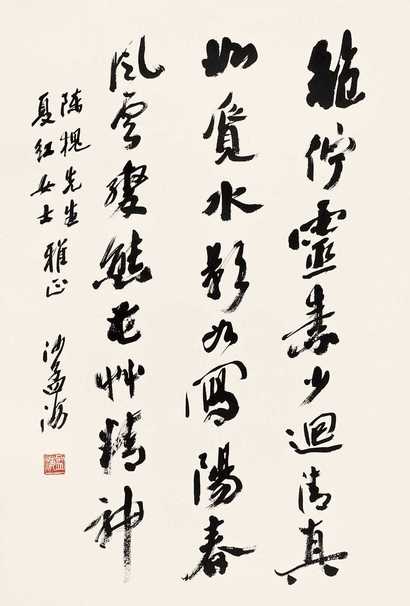 絕佇靈素少迴清真
如覓水影如寫陽春
風雲變態花艸精神
陳槐先生
夏紅女士
雅正
沙孟海